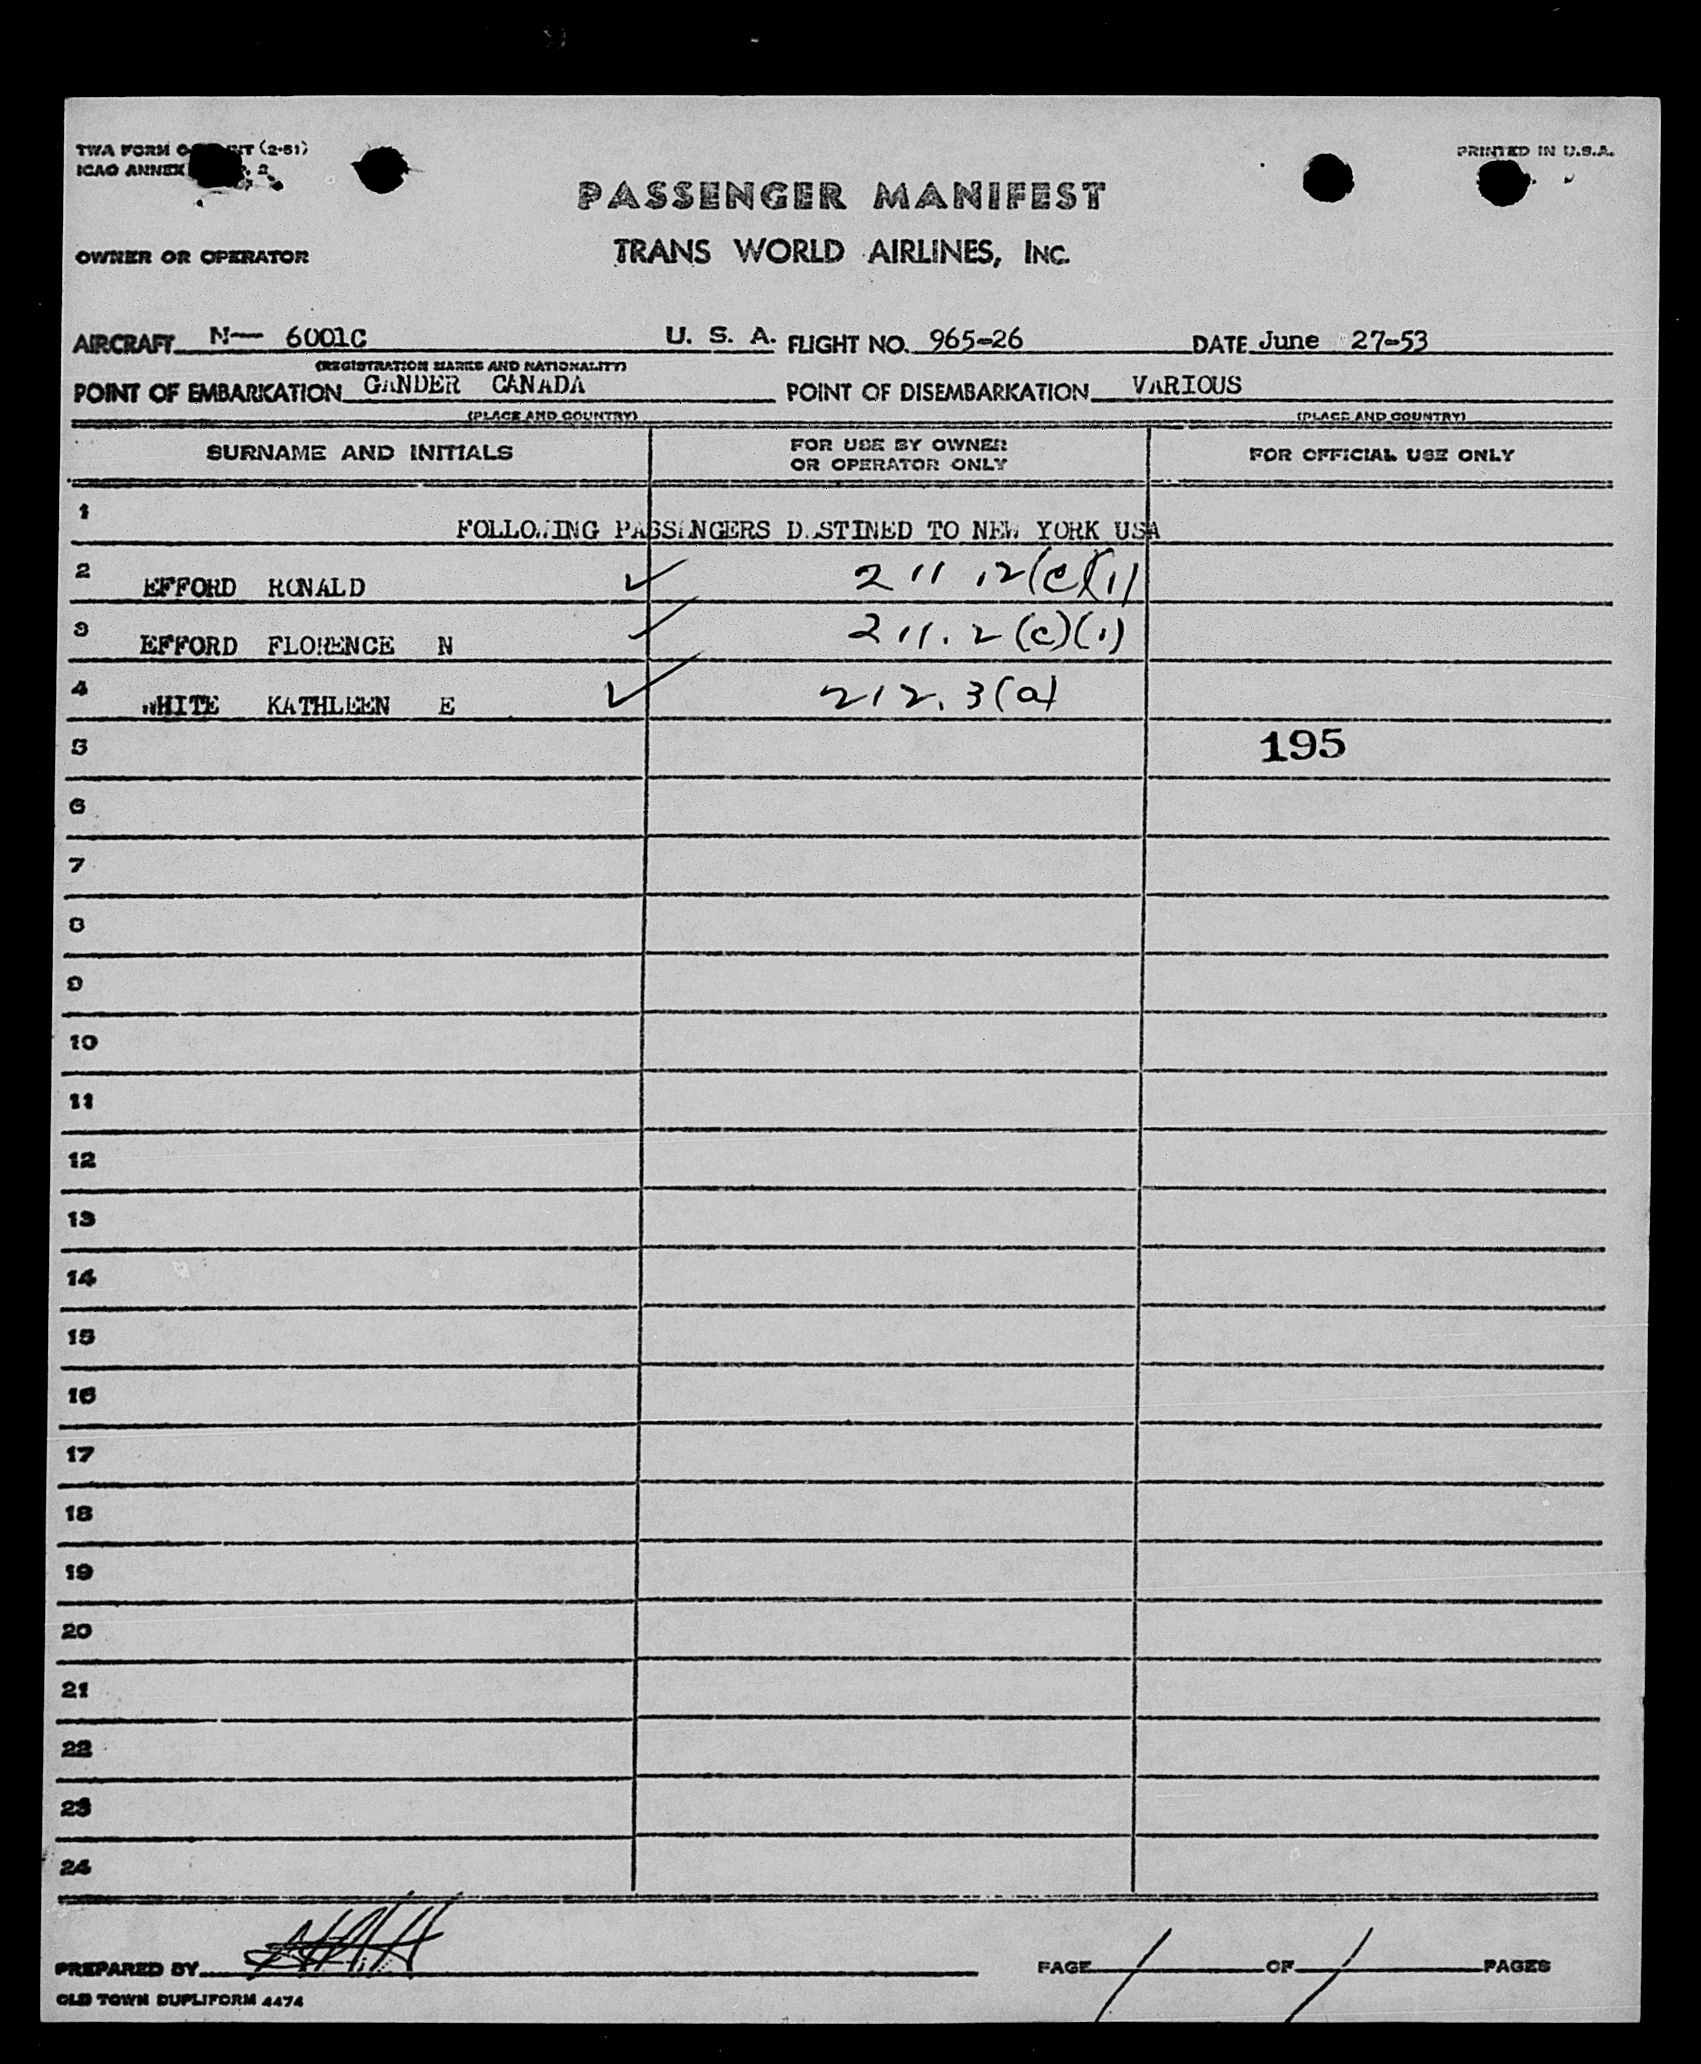 TWA FORM (2-51)
ICAO ANNEX 2
PRINTED IN U.S.A.
PASSENGER MANIFEST
OWNER OR OPERATOR
TRANS WORLD AIRLINES, INC.
AIRCRAFT N— 6001C U. S. A. FLIGHT NO. 965-26 DATE June 27-53
(REGISTRATION MARKS AND NATIONALITY)
POINT OF EMBARKATION GANDER CANADA POINT OF DISEMBARKATION VARIOUS
(PLACE AND COUNTRY) (PLACE AND COUNTRY)
SURNAME AND INITIALS
FOR USE BY OWNER
OR OPERATOR ONLY
FOR OFFICIAL USE ONLY
1 FOLLOWING PASSENGERS DESTINED TO NEW YORK USA
2 EFFORD RONALD ✓ 211.2(c)(1)
3 EFFORD FLORENCE N ✓ 211.2(c)(1)
4 WHITE KATHLEEN E ✓ 212.3(a)
5 195
6
7
8
9
10
11
12
13
14
15
16
17
18
19
20
21
22
23
24
PREPARED BY PAGE 1 OF 1 PAGES
OLD TOWN DUPLIFORM 4474